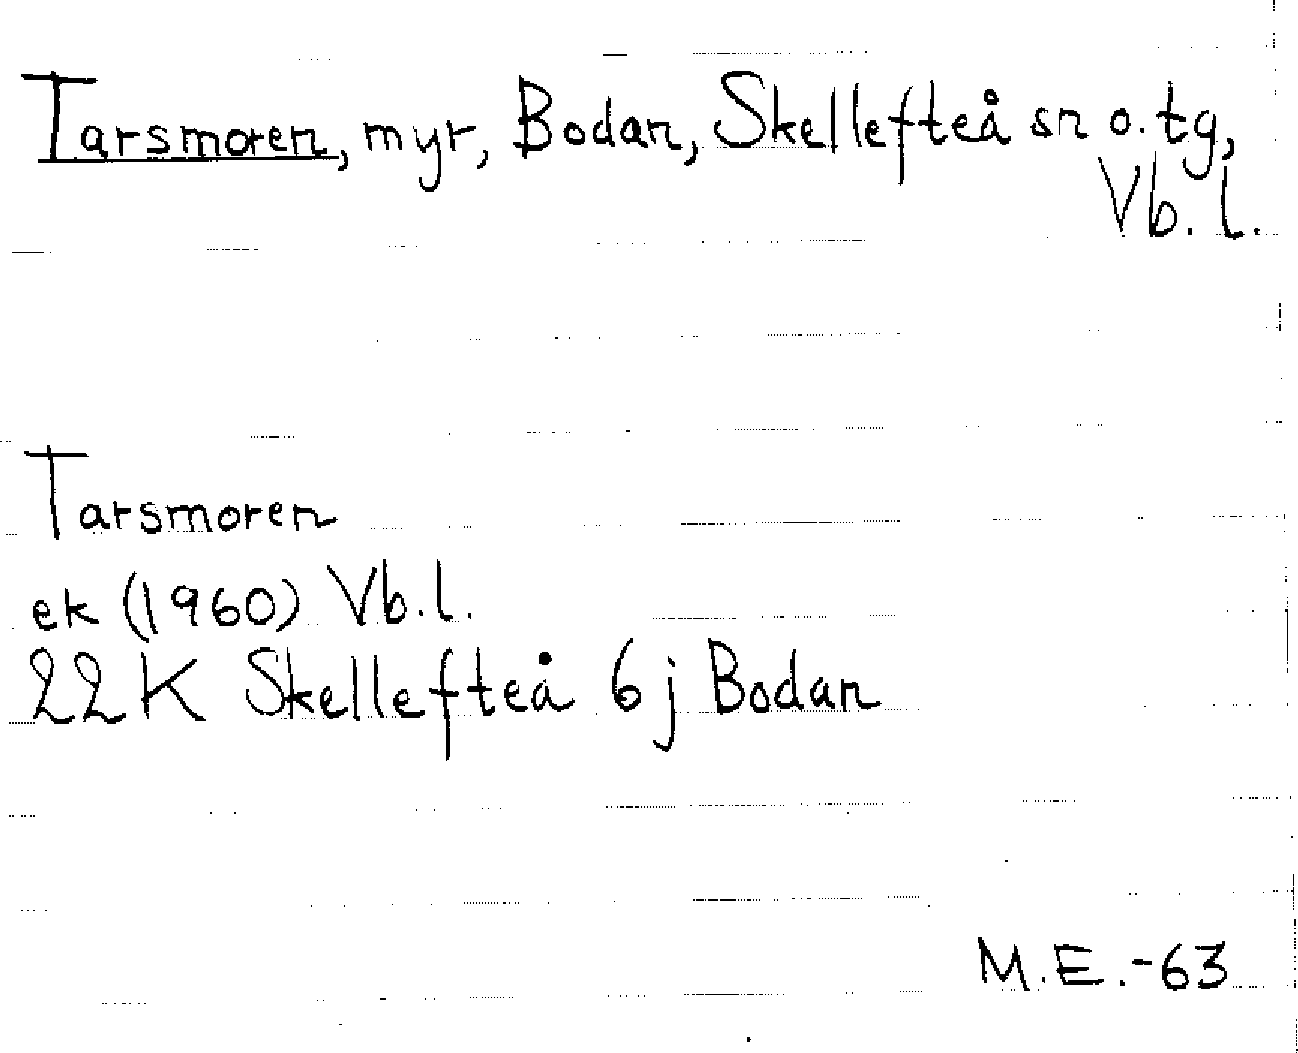 Tarsmoren, myr, Bodan, Skellefteå sn o. tg,
Vb. l.
Tarsmoren
ek (1960) Vb. l.
22 K Skellefteå 6 j Bodan
M.E.-63